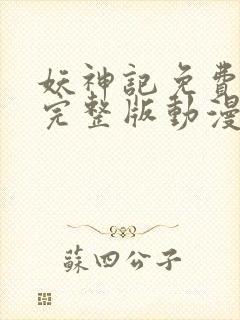 妖神記免費
完整版動漫
蘇四公子